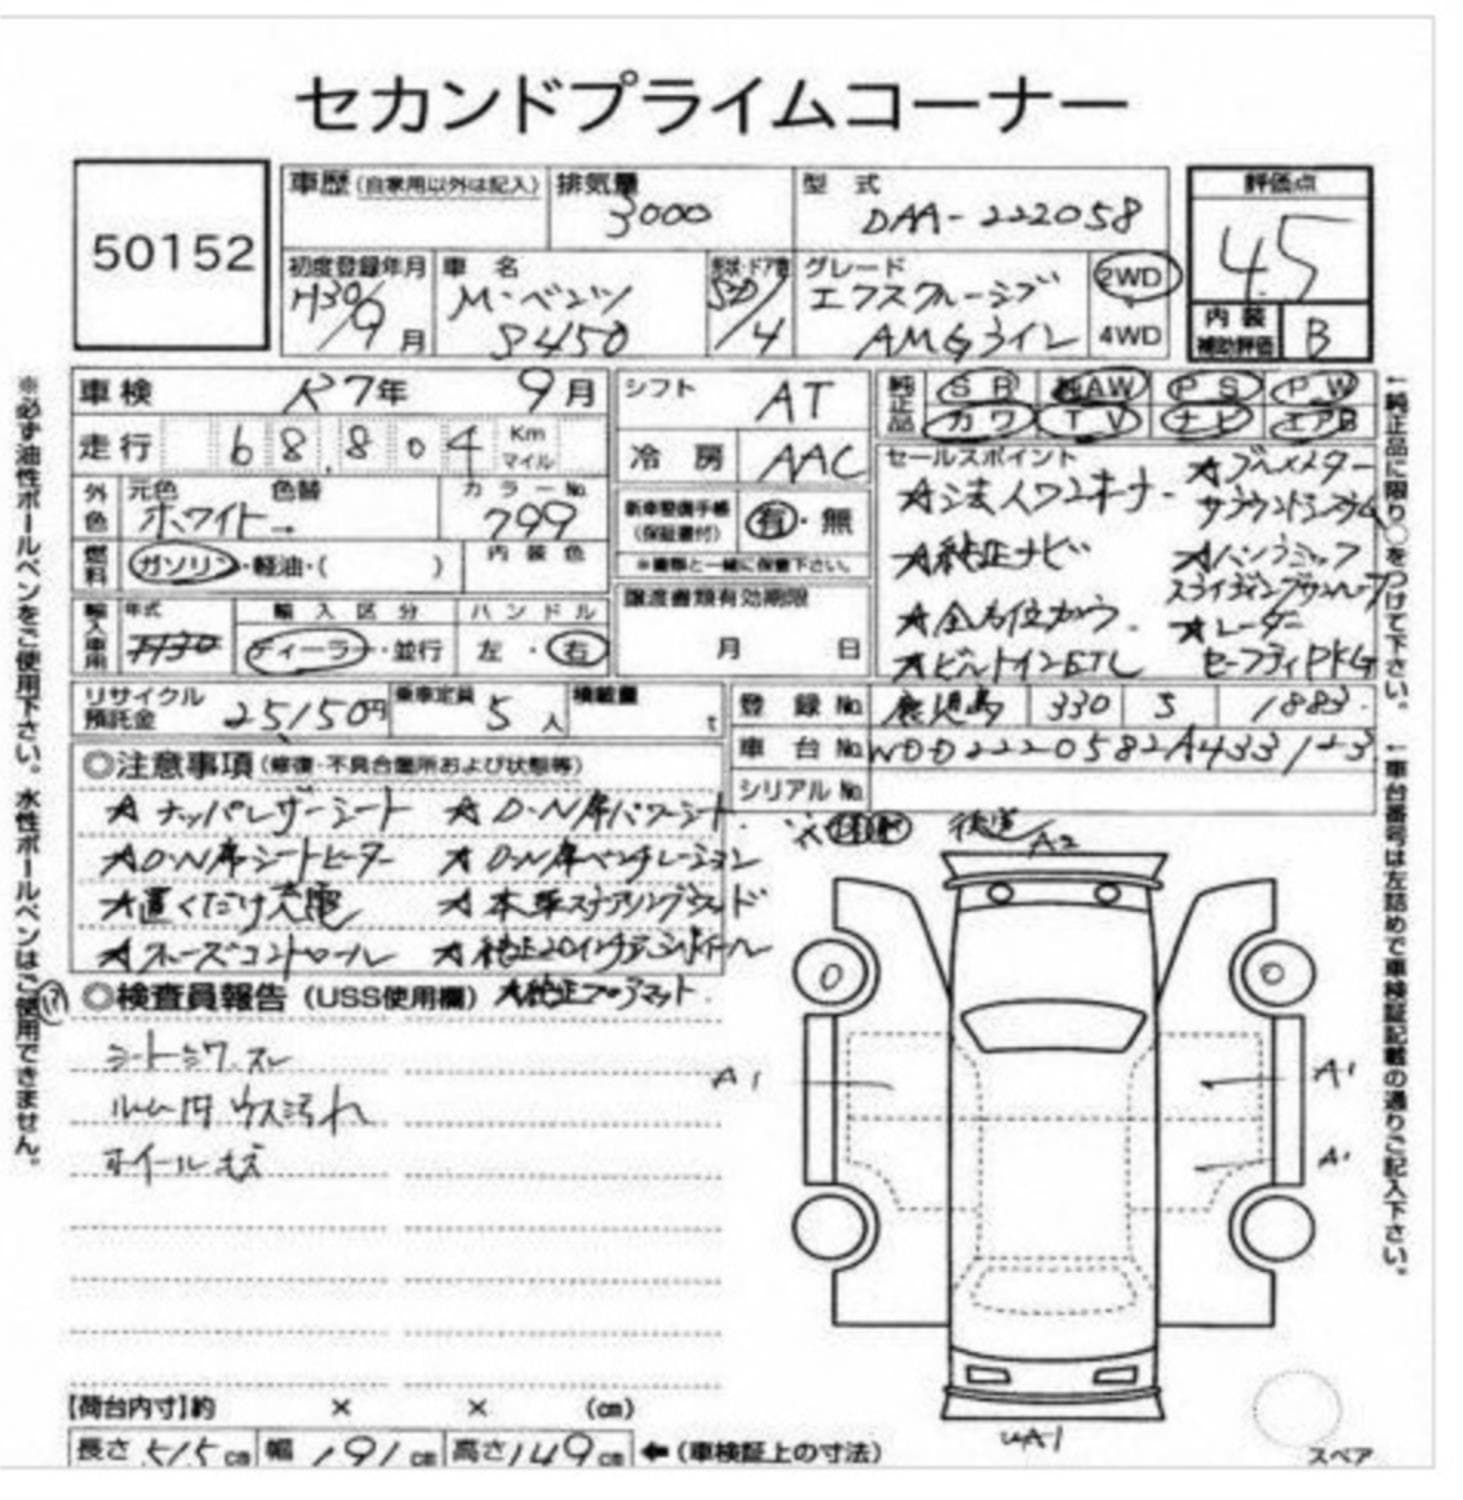 セカンドプライムコーナー
50152
車歴 (自家用以外は記入)
排気量
3000
型式
DAA-222058
評価点
4.5
初度登録年月
H30/9月
車名
M・ベンツ
S450
形状・ドア数
SD/4
グレード
エクスクルーシブ
AMGライン
2WD
4WD
内装
補助評価
B
車検 R7年 9月
シフト AT
純正品
SR 純AW PS PW
カワ TV ナビ エアB
走行 68,804 Km マイル
冷房 AAC
セールスポイント
★法人ワンオーナー
★ブルメスター
サラウンドシステム
★純正ナビ
★パノラミック
スライディングサンルーフ
★全方位カメラ
★レーダー
セーフティPKG
★ビルトインETC
外色
元色 色替 カラーNo.
ホワイト→ 799
新車整備手帳
(保証書付)
有・無
※書類と一緒に保管下さい。
燃料
ガソリン・軽油・( )
内装色
輸入車用
年式
H30
輸入区分
ディーラー・並行
ハンドル
左・右
譲渡書類有効期限
月 日
リサイクル
預託金 25,150円
乗車定員 5人
積載量 t
登録No. 鹿児島 330 1883
車台No. WDD2220582A433123
シリアルNo.
◎注意事項 (修復・不具合箇所および状態等)
★ナッパレザーシート ★D・N席パワーシート
★D・N席シートヒーター ★D・N席ベンチレーション
★置くだけ充電 ★本革ステアリングウッド
★クルーズコントロール ★純正20インチアルミホイール
★純正フロアマット
◎検査員報告 (USS使用欄)
シートシワ、スレ
ルーム内ウス汚れ
ホイールキズ
後送
A2
A1
A1
A1
UA1
【荷台内寸】約 × × (cm)
長さ 515cm 幅 191cm 高さ 149cm ←(車検証上の寸法)
スペア
※必ず油性ボールペンをご使用下さい。水性ボールペンはご使用できません。
↑純正品に限り○をつけて下さい。
↑車台番号は左詰めで車検証記載の通りご記入下さい。